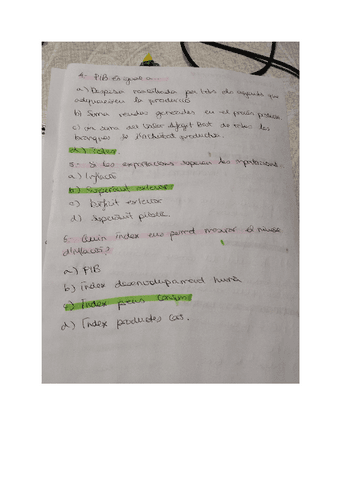 4- PIB es igual a:
a) Despesa realitzada per tots els agents que
adquireixen la producció
b) Suma rendes generades en el procés productiu
c) com suma del Valor Afegit Brut de totes les
branques de l'activitat productiva.
d) Totes
5- Si les exportacions superen les importacions...
a) Inflació
b) Superàvit exterior
c) Dèficit exterior
d) Superàvit públic
6- Quin índex ens permet mesurar el nivell
d'inflació?
a) PIB
b) Índex desenvolupament humà
c) Índex preus consum
d) Índex productes